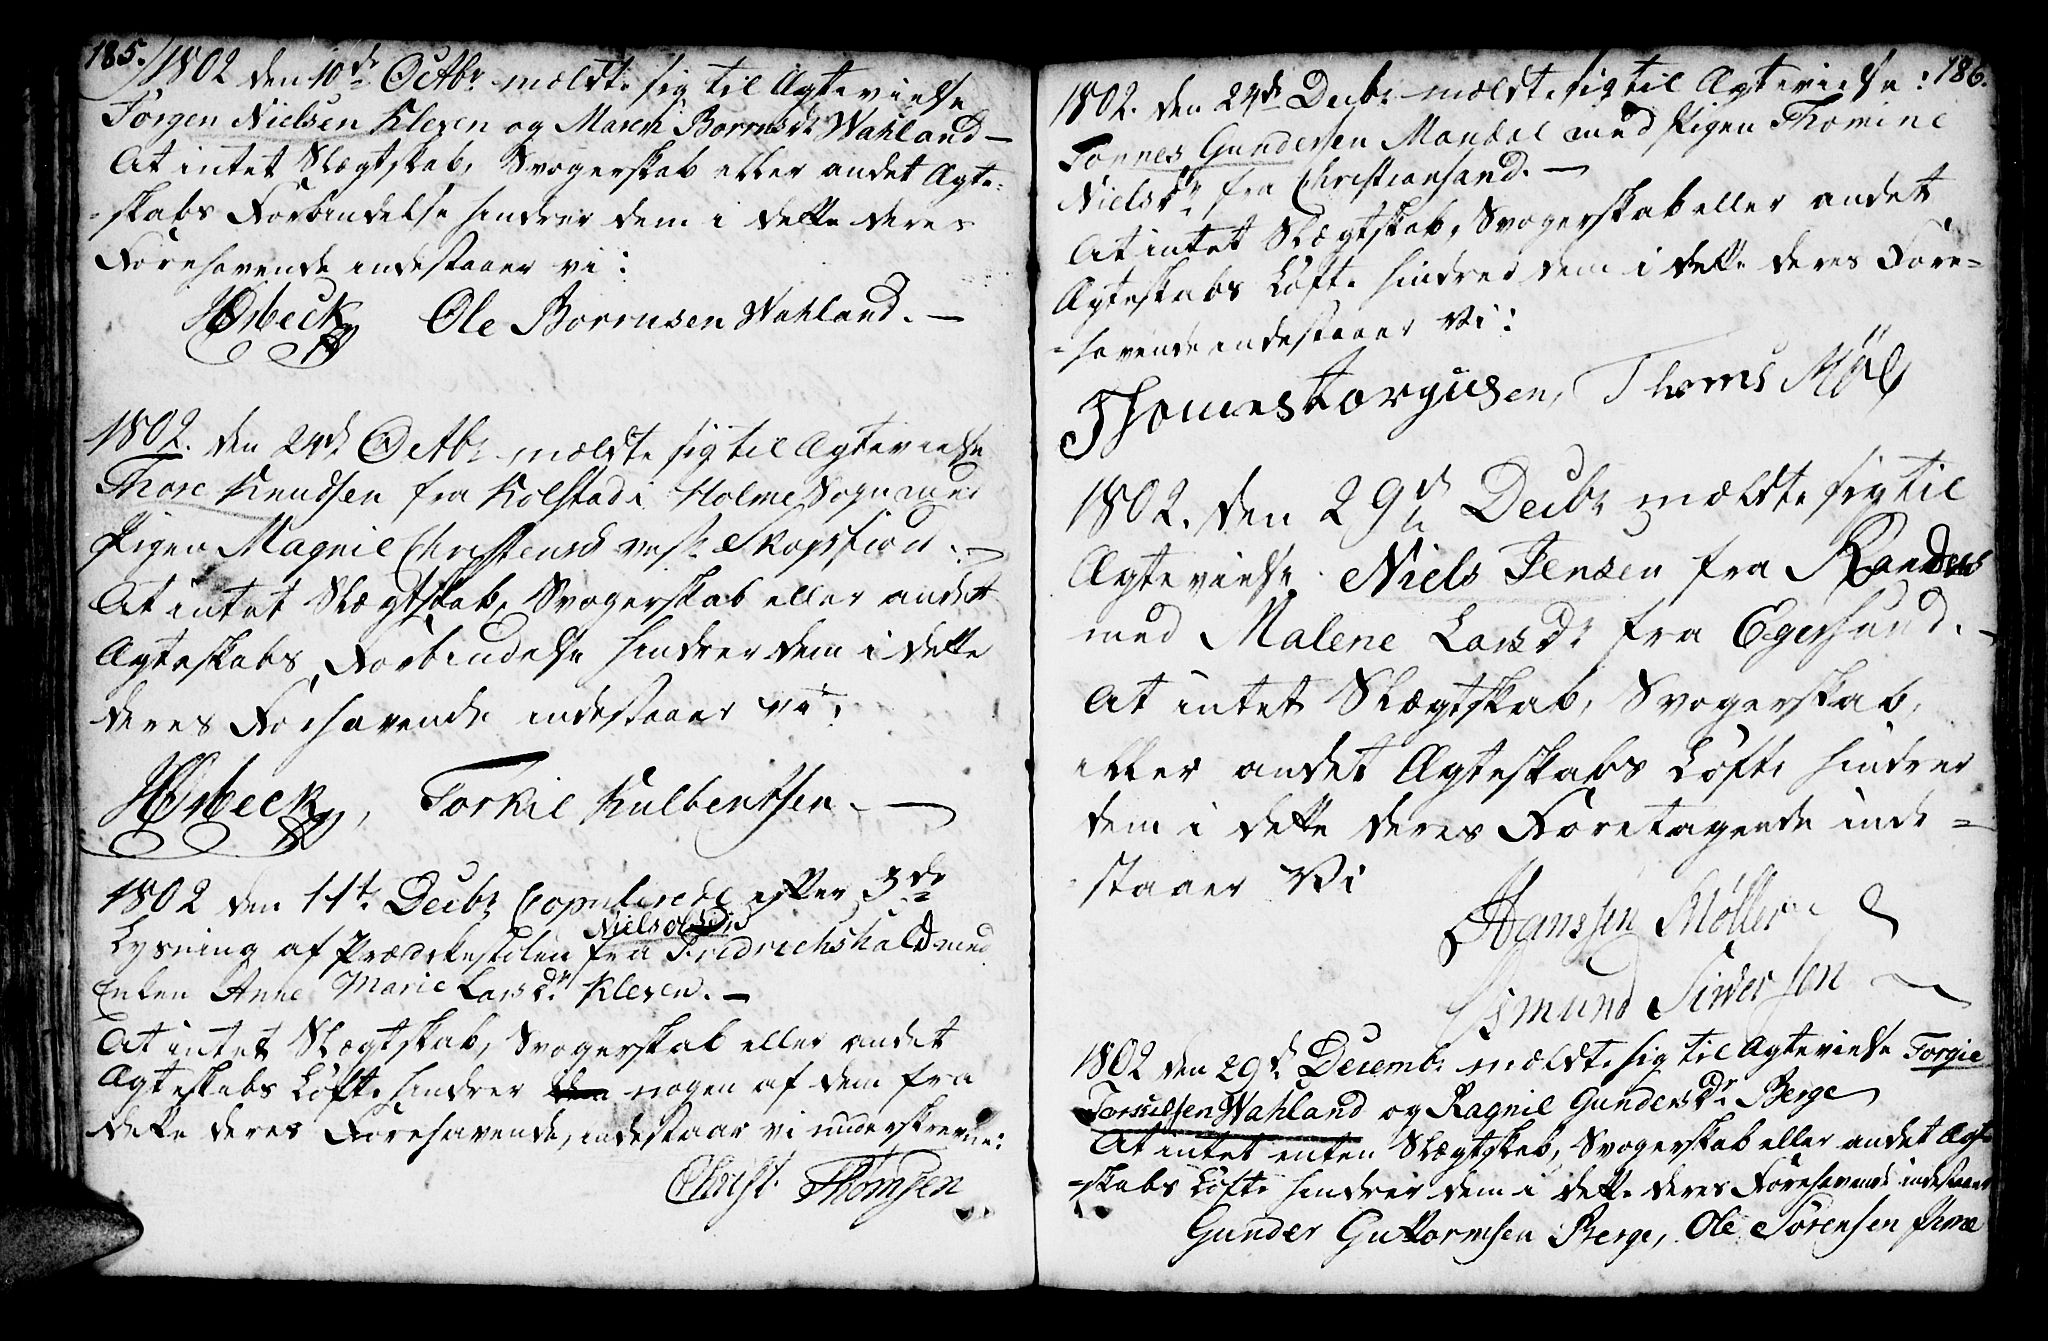 185.
1802 den 10de Octbr mældte sig til Ægtevielse
Jørgen Nielsen Kleven og Maren Borrusdr Wahland —
At intet Slægtskab, Svogerskab eller andet Ægte-
-skabs Forbindelse hindrer dem i dette deres
Forehavende indestaaer vi:
Ole Borrusen Wahland. —
1802. den 24de Octbr mældte sig til Ægtevielse
Thore Knudsen fra Kolstad i Holme Sogn med
Pigen Magnil Christensd Skopstad. —
At intet Slægtskab, Svogerskab eller andet
Ægteskabs Forbindelse hindrer dem i dette
deres Forehavende indestaaer vi:
Torkil Kulbentsen. —
1802 den 11te Decbr Copulerede efter 3de
Niels Olsen
Lysning af Prædikestolen fra Fredrichshald med
Enken Anne Marie Larsdr Kleven. —
At intet Slægtskab, Svogerskab eller andet
Ægteskabs Løfte hindrer nogen af dem fra
dette deres Forehavende, indestaar vi underskrevne:
Christ. Thomsen
186.
1802. den 24de Decbr mældte sig til Ægtevielse:
Tønnes Gundersen Mandal med Pigen Thomine
Nielsdr fra Christiansand. —
At intet Slægtskab, Svogerskab eller andet
Ægteskabs Løfte hindrer dem i dette deres Fore-
-havende indestaaer Vi:
Thomes Torgusen, Thoms
1802. den 29de Decbr mældte sig til
Ægtevielse Niels Jensen fra Randers
med Malene Larsdr fra Egersund. —
At intet Slægtskab, Svogerskab,
eller andet Ægteskabs Løfte hindrer
dem i dette deres Foretagende inde-
-staaer Vi
Hanssen Møller
Siversen
1802 den 29de Decembr mældte sig til Ægtevielse Torgie
Torkilsen Wahland og Ragnil Gundersdr Berge
At intet enten Slægtskab, Svogerskab eller andet Ægte
-skabs Løfte hindrer dem i dette deres Forehavende indestaaer
Gunder Guttormsen Berge, Ole Sørensen